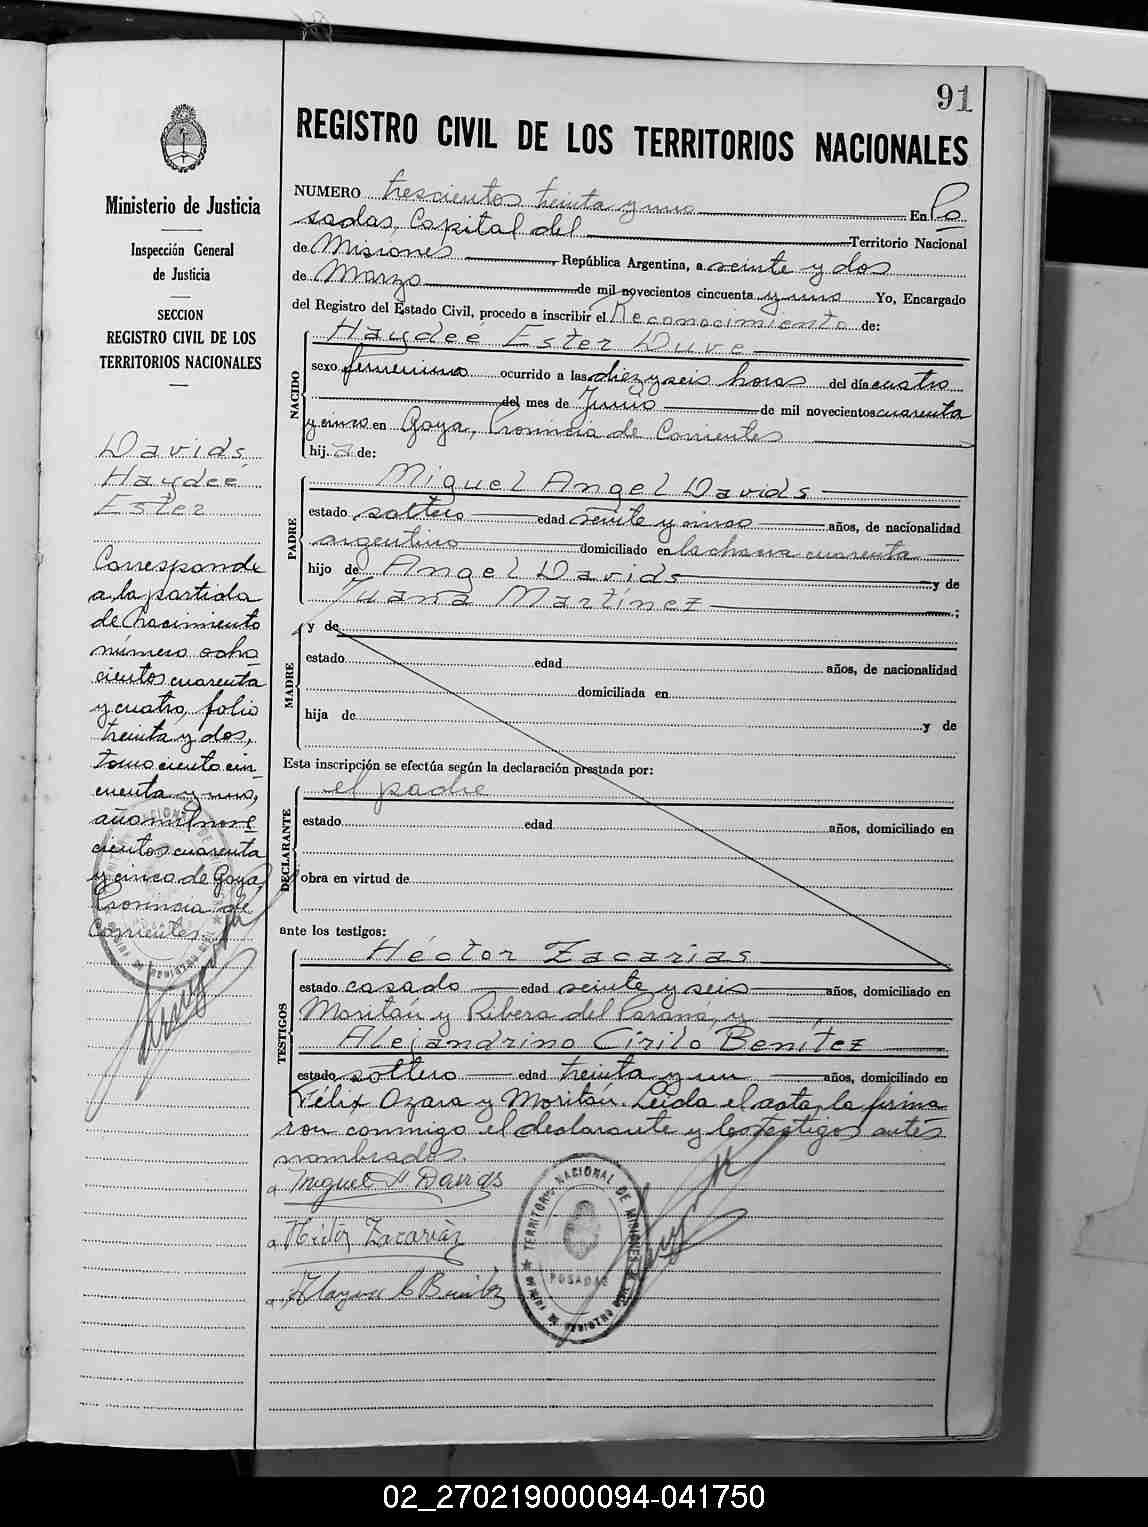 91
REGISTRO CIVIL DE LOS TERRITORIOS NACIONALES
Ministerio de Justicia
Inspección General
de Justicia
SECCION
REGISTRO CIVIL DE LOS
TERRITORIOS NACIONALES
Davids,
Haydeé
Ester
Corresponde
a la partida
de nacimiento
número ocho
cientos cuarenta
y cuatro, folio
treinta y dos,
tomo ciento cin
cuenta y uno,
año mil nove
cientos cuarenta
y cinco de Goya,
Provincia de
Corrientes.
NUMERO trescientos treinta y uno En Po
sadas, Capital del Territorio Nacional
de Misiones, República Argentina, a veinte y dos
de Marzo de mil novecientos cincuenta y uno Yo, Encargado
del Registro del Estado Civil, procedo a inscribir el Reconocimiento de:
NACIDO
Haydeé Ester Duve
sexo femenino ocurrido a las diez y seis horas del día cuatro
del mes de Junio de mil novecientos cuarenta
y cinco en Goya, Provincia de Corrientes
hija de:
PADRE
Miguel Angel Davids
estado soltero edad veinte y cinco años, de nacionalidad
argentino domiciliado en la chacra cuarenta
hijo de Angel Davids y de
Juana Martínez ;
MADRE
y de
estado edad años, de nacionalidad
domiciliada en
hija de y de
Esta inscripción se efectúa según la declaración prestada por:
DECLARANTE
el padre
estado edad años, domiciliado en
obra en virtud de
ante los testigos:
TESTIGOS
Héctor Zacarias
estado casado edad veinte y seis años, domiciliado en
Moritán y Ribera del Paraná, y
Alejandrino Cirilo Benítez
estado soltero edad treinta y un años, domiciliado en
Félix Azara y Moritán. Leída el acta, la firma
ron conmigo el declarante y los testigos antes
nombrados.
Miguel A Davids
Héctor Zacarías
C Benitez
TERRITORIO NACIONAL DE MISIONES
POSADAS
02_270219000094-041750